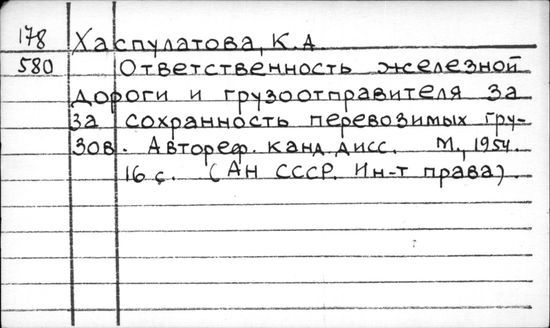 178 Хаспулатова, К.А
580 Ответственность железной
дороги и грузоотправителя за
за сохранность перевозимых гру-
зов. Автореф. канд. дисс. М., 1954.
16 с. (АН СССР. Ин-т права)